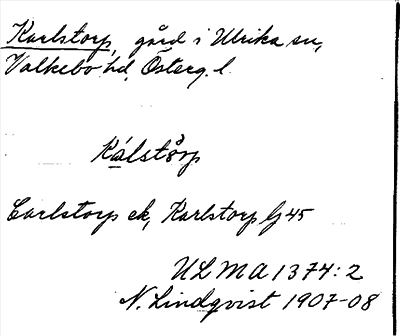 Karlstorp, gård i Ulrika sn,
Valkebo hd, Österg. l.
Kálstårp
Carlstorp ek, Karlstorp lj 45
ULMA 1374:2
N. Lindqvist 1907-08